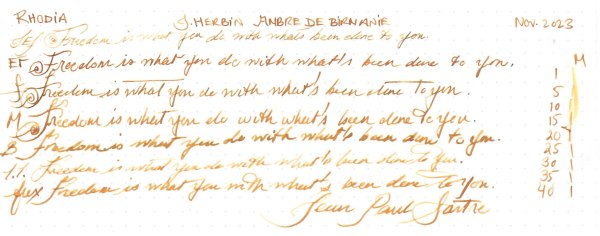 RHODIA J. HERBIN AMBRE DE BIRMANIE Nov. 2023
EF Freedom is what you do with what's been done to you
EF Freedom is what you do with what's been done to you. M
F Freedom is what you do with what's been done to you. 1
5
M Freedom is what you do with what's been done to you. 10
15
B Freedom is what you do with what's been done to you. 20
25
1.1. Freedom is what you do with what's been done to you. 30
flex Freedom is what you with what's been done to you. 35
40
Jean Paul Sartre